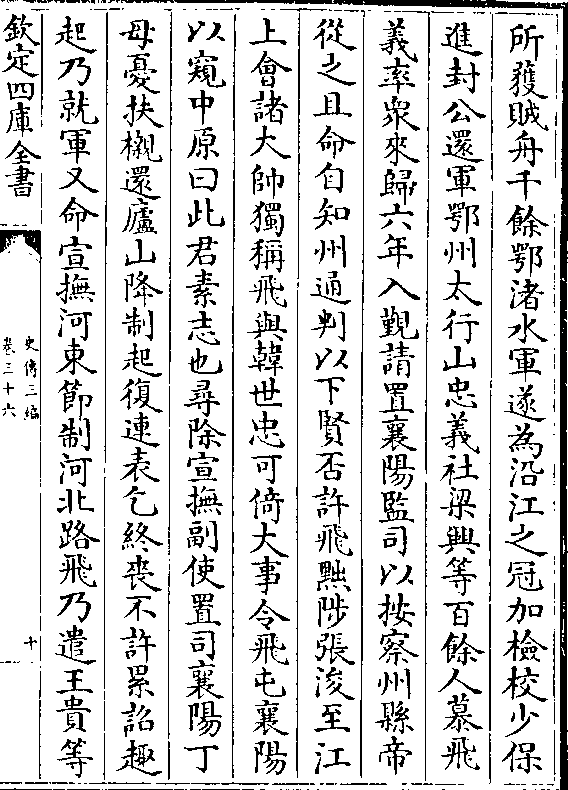 所獲賊舟千餘鄂渚水軍遂為沿江之冠加檢校少保
進封公還軍鄂州太行山忠義社梁興等百餘人慕飛
義率衆來歸六年入覲請置襄陽監司以按察州縣帝
從之且命自知州通判以下賢否許飛黜陟張浚至江
上會諸大帥獨稱飛與韓世忠可倚大事令飛屯襄陽
以窺中原曰此君素志也尋除宣撫副使置司襄陽丁
母憂扶櫬還廬山降制起復連表乞終喪不許累詔趣
起乃就軍又命宣撫河東節制河北路飛乃遣王貴等
欽定四庫全書
史傳三編
卷三十六
十